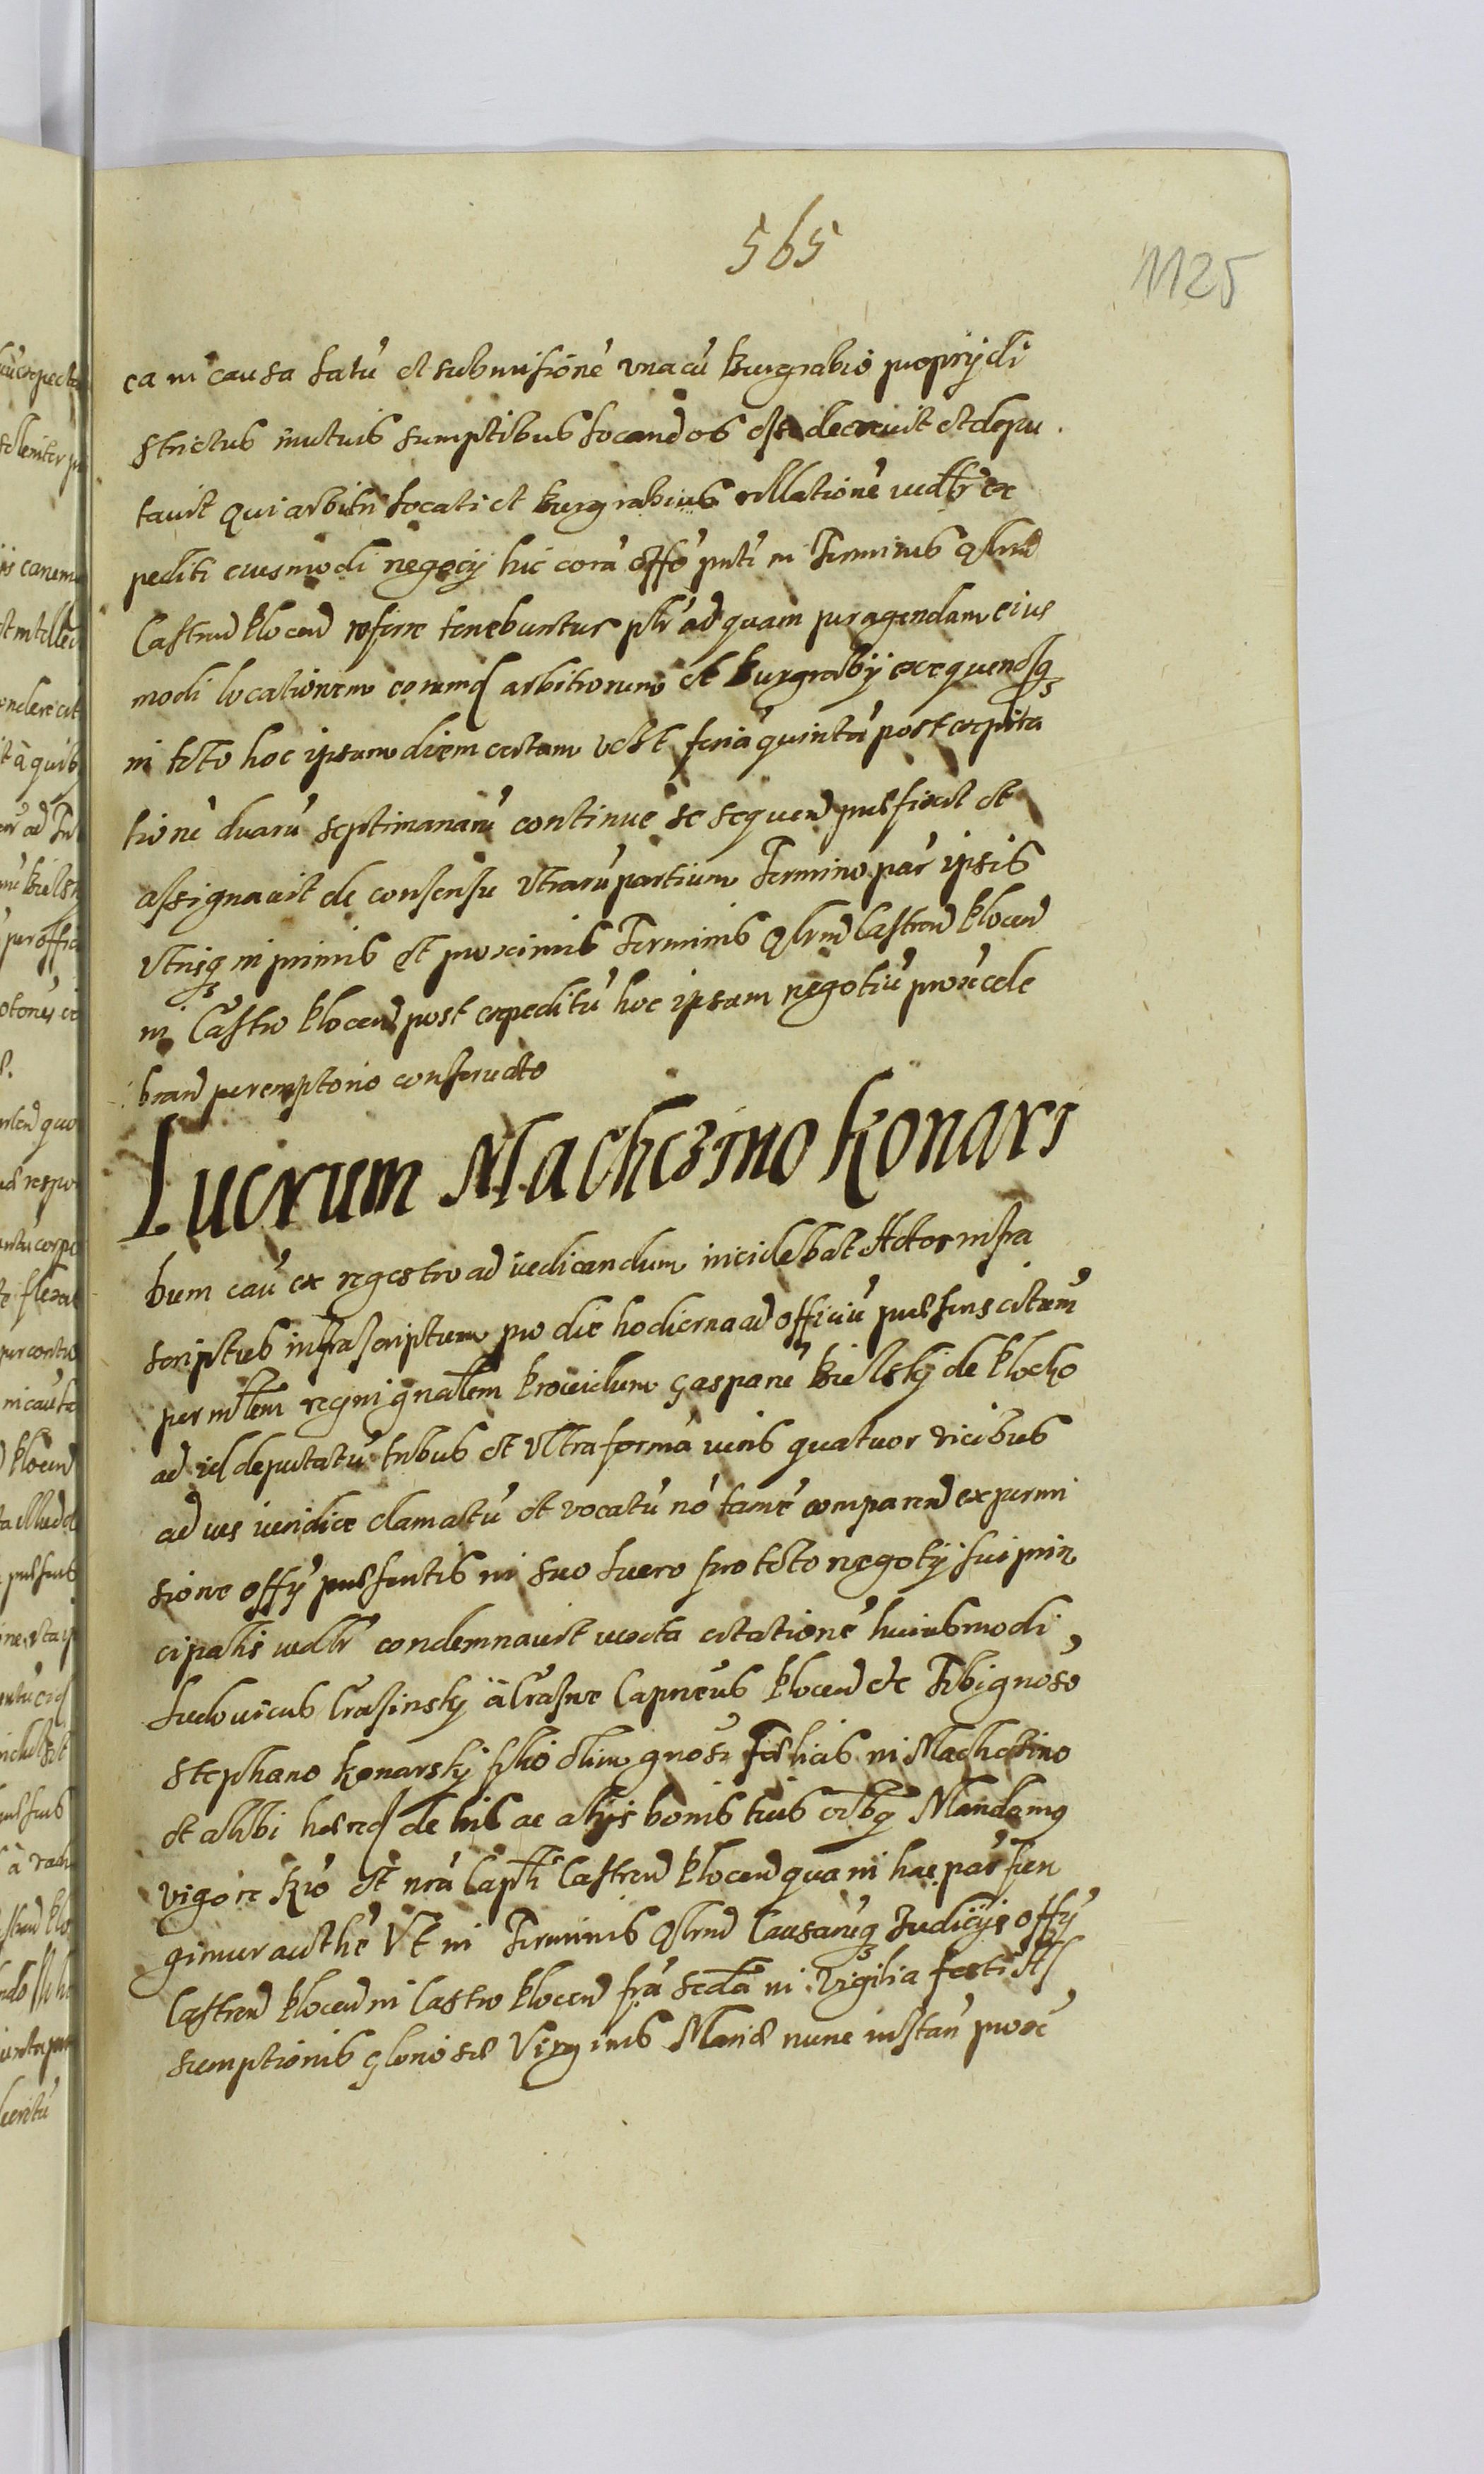 565
1125
ca in causa latu et submisione una cu Burgrabio proprij di
strictus mutuis sumptibus locandos esse decrevit et depu
tavit Qui arbitri locati et Burgrabius rellatione iudltr ex
pediti eiusmodi negocij hic cora offo pnti in Terminis qlrnd
Castrend Plocend referre tenebuntur pltr ad quam peragendam eius
modi locationem eorund arbitrorum et Burgrabij exequendsq
in toto hoc ipsam diem certam vdlt feria quinta post expira
tione duaru septimanaru continue se sequend præfixit et
assignavit de consensu utraru partium Termino par ipsis
utrisq in primis et proximis Terminis qlrnd Castrend Plocend
in Castro Plocend post expeditu hoc ipsam negotiu prox cele
brand peremptorio conservato
Lucrum Machczino Konars
Dum cau ex regestro ad iudicandum incidebat Actor infra
scriptus infrascriptum pro die hodierna ad officiu præsens citatu
per mltem regni gnalem Providum Gaspare Bielsky de Plocko
ad id deputatu tribus et ultra forma iuris quatuor vicibus
ad ius iuridice clamatu et vocatu no tame comparend ex permi
sione offy præsentis in suo lucro pro toto negotij sui prin
cipalis iudltr condemnavit iuxta citatione huiusmodi
Ludovicus Crasinsky a Crasne Capneus Plocend etc Tibi gnoso
Stephano Konarsky filio olim gnosi Felicis in Machczino
et alibi hæred de his ac alijs bonis tuis oibq Mandamq
vigore Rio et nra Capli Castrend Plocend qua in hac par fun
gimur authe Ut in Terminis qlrnd Causaruq Judicijs offy
Castrend Plocend in Castro Plocend fra scda in Vigilia festi As
sumptionis gloriosæ Virginis Mariæ nunc instan prox